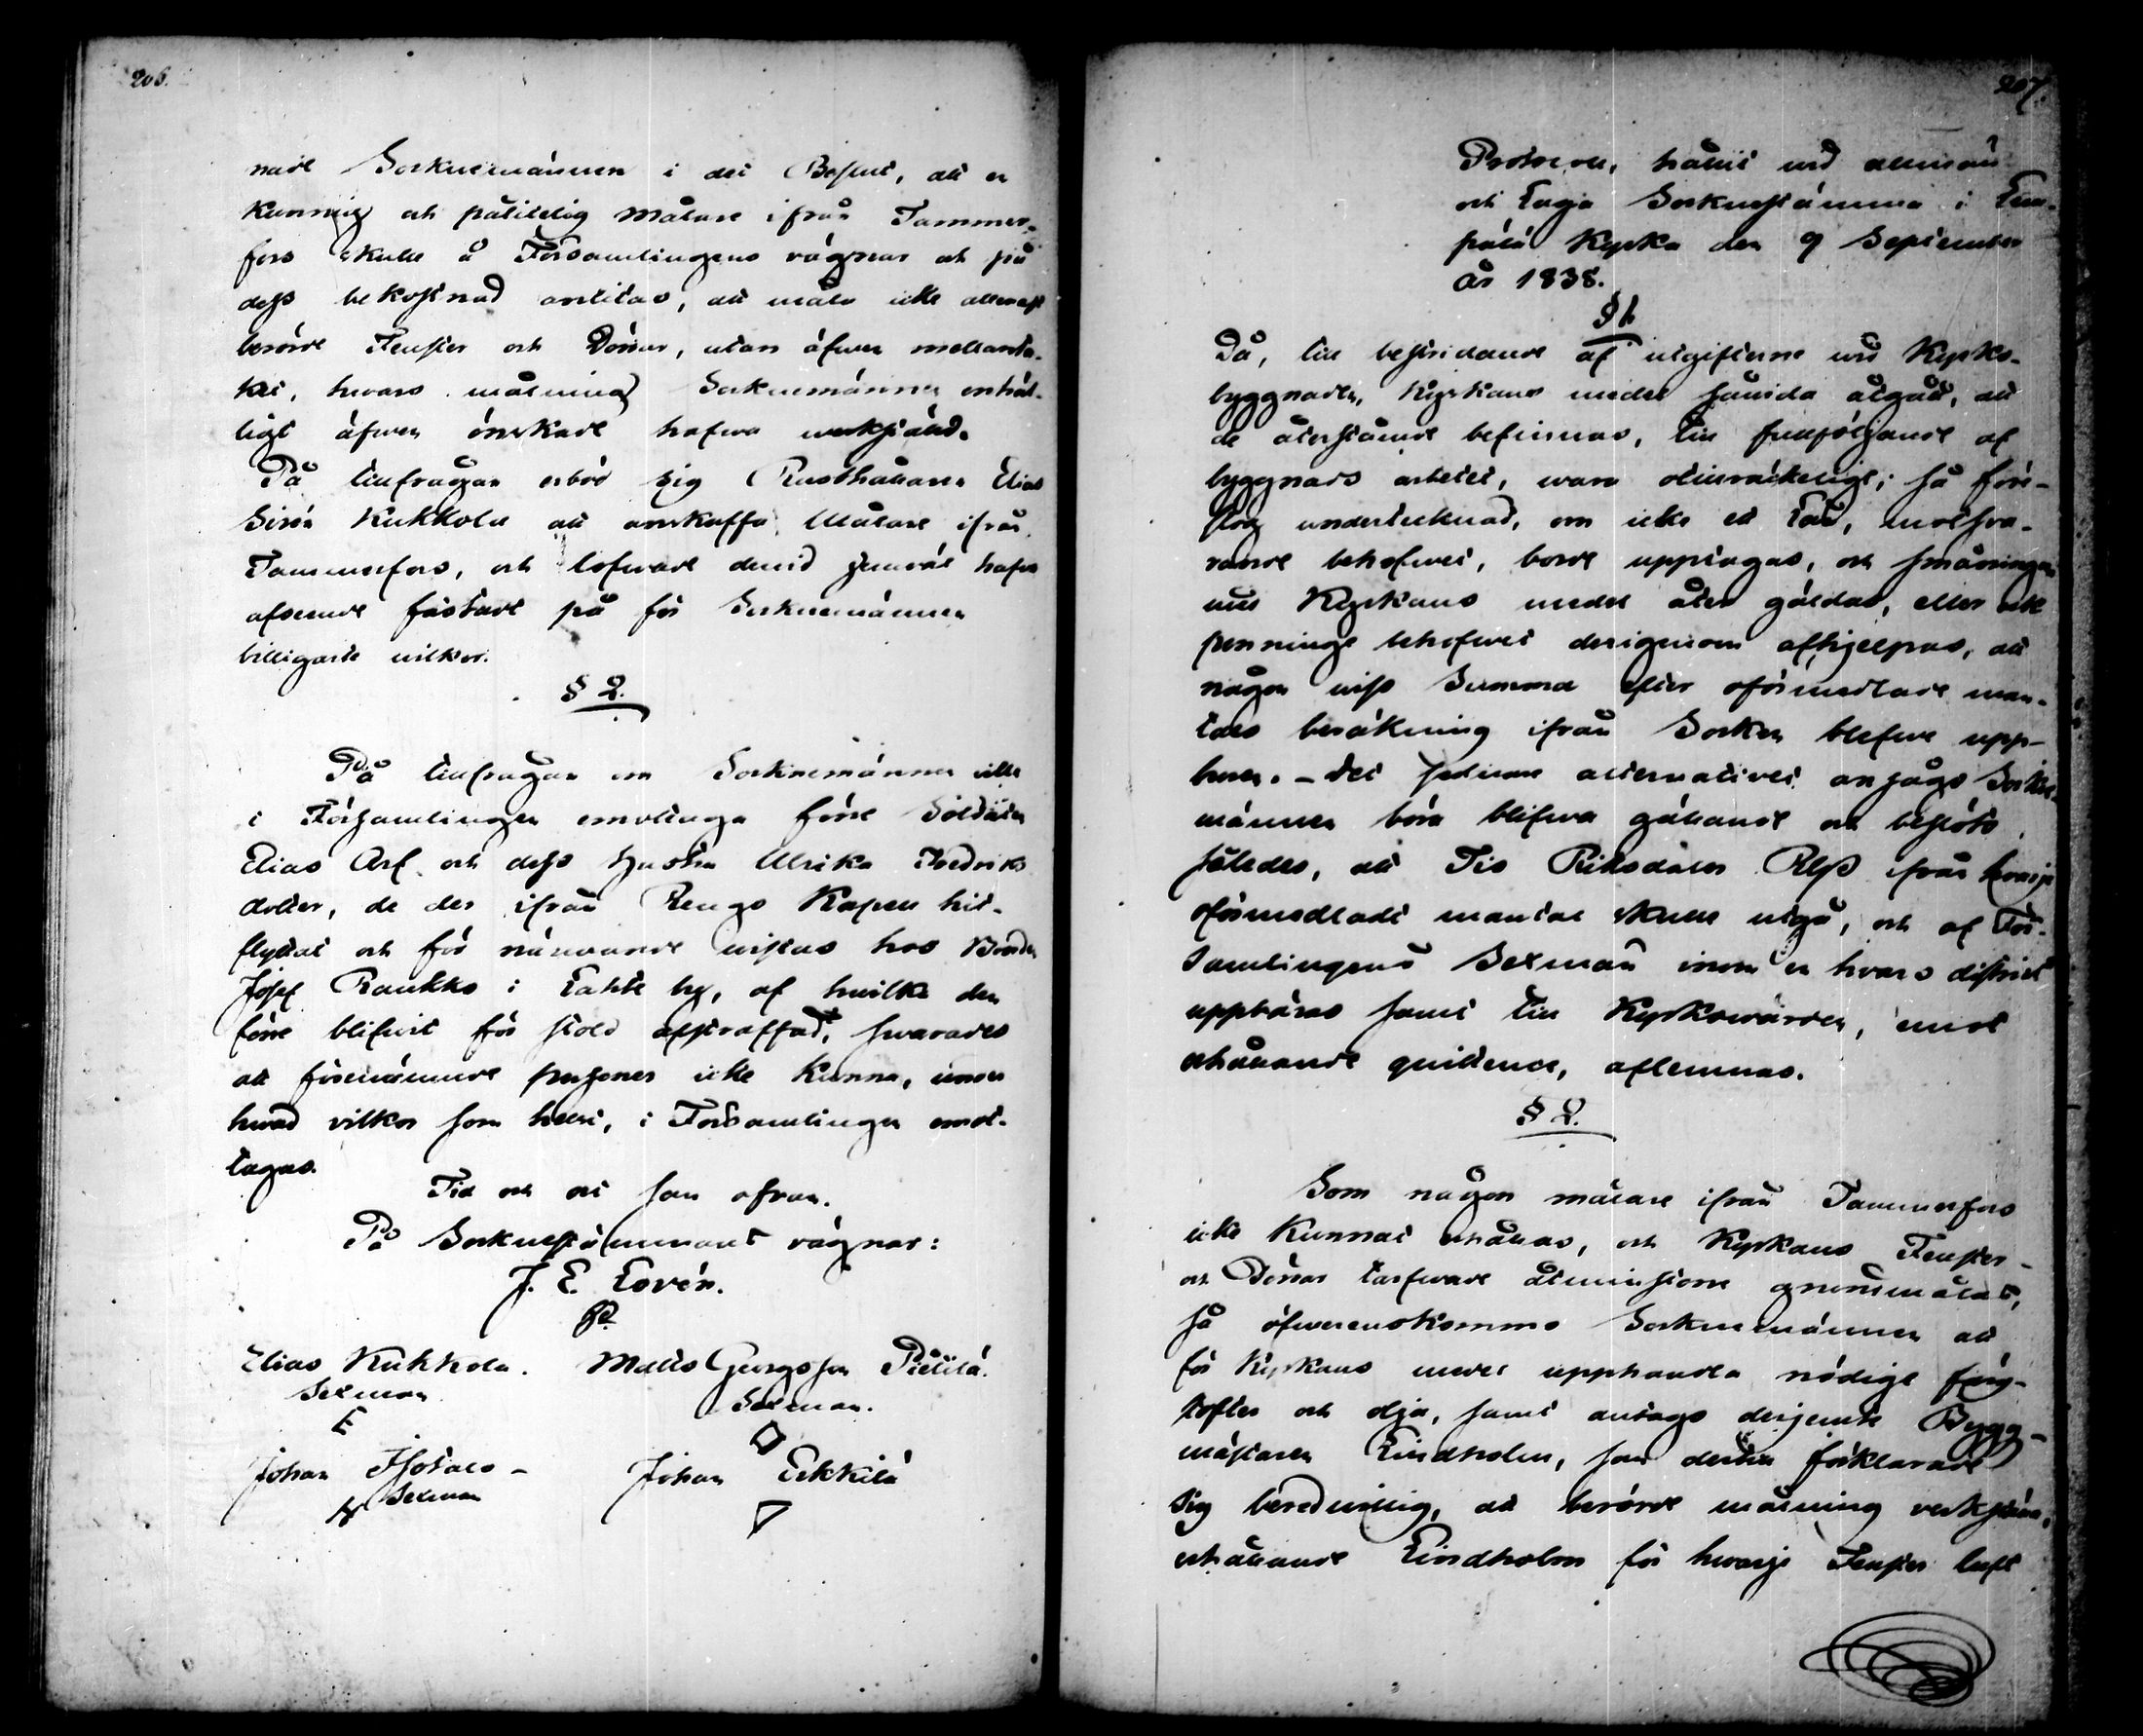 206.
nade Socknemännen i det Beslut, att en
kunnig och pålitelig Målare ifrån Tammer-
fors skulle å Församlingens vägnar och på
dess bekostnad antitas, att måla icke allenast
berörde Fenster och Dörrar, utan äfwen mellanta-
ket, hwars målning Socknemännen enhäl-
ligt äfwen önskade hafwa werkstäld.
På tillfrågan erböd sig Rusthållaren Elias
Sirén Kukkola att anskaffa Målare ifrån
Tammerfors, och lofwade derwid hafwa
afseende fästadt på för Socknemännen
billigaste wilkor.
§ 2.
På tillfrågan om Socknemännen wille
i Församlingen emottaga förre Soldaten
Elias Arf och dess hustru Ulrika Fredriks
dotter, de der ifrån Rengo Kapell hit-
flyttat och för närwarande wistas hos Bonden
Josef Raukko i Lahte by, af hwilka den
förre blifwit för stöld afstraffad, swarades
att förenämnde personer icke kunna, under
hwad vilkor som helst, i Församlingen emot-
tagas.
Tid och ort som ofwan.
På Sockneståmmans vägnar:
J. E. Lovén.
Elias Kukkola. Matts Georgsson Pietilä.
Sexman Sexman.
Johan Isotalo - Johan Erkkilä
Sexman
207.
Protocoll, hållit wid allmän
och Laga Socknestämma i Lem-
pälä Kyrka den 9 September
År 1838.
§ 1
Då, till bestridande af utgifterne wid Kyrko-
byggnaden, Kyrkans medel samida åtgått, att
de återstående befinnas, till fullföljande af
byggnads arbetet, wara otillräckeligt; så före-
slog undertecknad, om icke ett Lån, motswa-
rande behofwet, borde upptagas, och småningom
med Kyrkans medel åter gäldas, eller ock
penninge behofwet derigenom afhjelpas, att
någon wiss Summa efter oförmedlade man-
tals beräkning ifrån Socken blefwe upp-
buren. - Det sednare alternativet ansågo Sockne-
männen böra blifwa gällande och beslöts
således, att Tio Riksdaler Rgs ifrån hwarje
oförmedladt mantal skulle utgå, och af För-
samlingens Sexmän inom en hwars district
uppbäras samt till Kyrkowärden, emot
erhållande quittence, aflemnas.
§ 2.
Som någon målare ifrån Tammerfors
icke kunnat erhållas, och Kyrkans Fenster-
och Dörrar tarfwade åtminstone grundmålas,
så öfwerenskommo Socknemännen att
för Kyrkans medel upphandla nödige färg-
stofter och olja, samt antogs derjemte Bygg-
mästaren Lindholm, som förklarade
sig beredwillig, att berörde målning verkställa,
erhållande Lindholm för hwarje Fenster luft